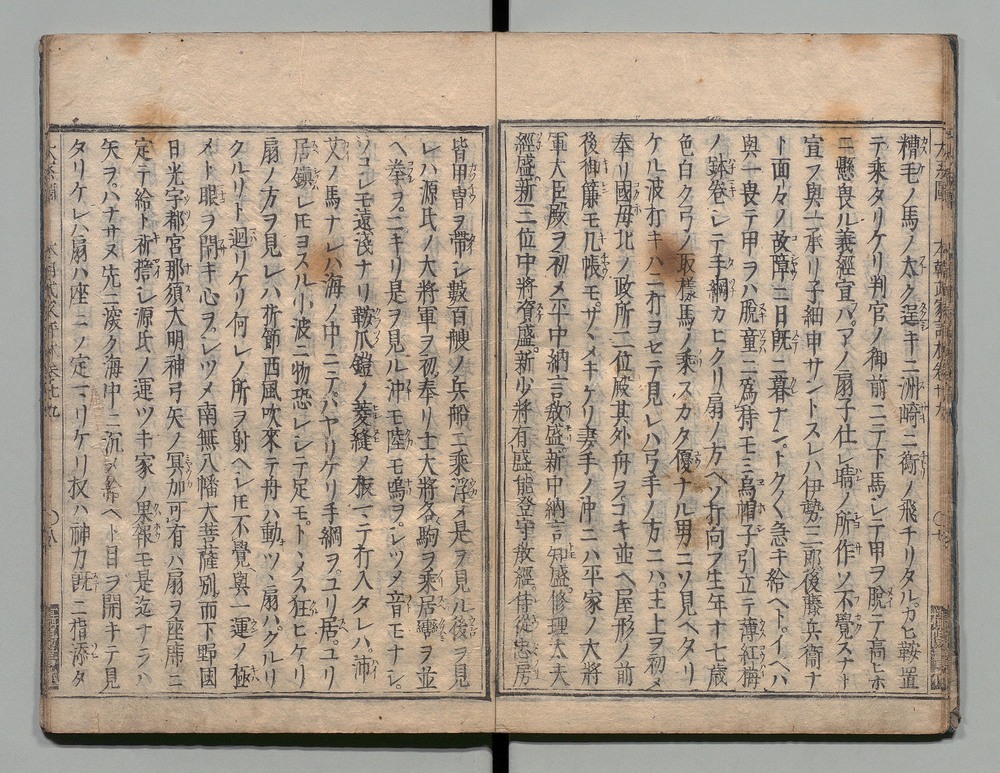 糟毛ノ馬ノ太ク逞キニ洲崎ニ衛ノ飛チリタル貝鞍置
テ乗タリケリ判官ノ御前ニテ下馬シテ甲ヲ脱テ高ヒホ
ニ懸畏ル義經宣ハアノ扇子仕レ晴ノ所作ソ不覺スナト
宣フ與一承リ子細申サントスレハ伊勢三郎後藤兵衞ナ
ト面々ノ故障ニ日既ニ暮ナントクク急キ給ヘトイヘハ
與一畏テ甲ヲハ脱童ニ爲持モミ烏帽子引立テ薄紅梅
ノ鉢卷シテ手綱カヒクリ扇ノ方ヘソ打向フ生年十七歳
色白ク弓ノ取樣馬ノ乗スカタ優ナル男ニソ見ヘタリ
ケル波打キハニ打ヨセテ見レハ弓手ノ方ニハ主上ヲ初メ
奉リ國母北ノ政所二位殿其外舟ヲコキ並ヘ屋形ノ前
後御簾モ几帳モザヽメキケリ妻手ノ沖ニハ平家ノ大將
軍大臣殿ヲ初メ平中納言敎盛新中納言知盛修理大夫
經盛新三位中將資盛新少將有盛能登守敎經侍從忠房
皆甲冑ヲ帶シ數百艘ノ兵船ニ乗浮メ是ヲ見ル後ヲ見
レハ源氏ノ大將軍ヲ初奉リ士大將各駒ヲ乗居轡ヲ並
ヘ拳ヲニキリ是ヲ見ル沖モ陸モ鳴ヲシツメ音モナシ
ソコシモ遠淺ナリ鞍爪鎧ノ菱縫ノ板マテ打入タレハ沛
艾ノ馬ナレハ海ノ中ニテハヤリケリ手綱ヲユリ居ユリ
居鎭レ𪜈ヨスル小波ニ物恐シシテ足モトヽメス狂ヒケリ
扇ノ方ヲ見レハ折節西風吹來テ舟ハ動ツヽ扇ハグルリ
クルリト𢌞リケリ何レノ所ヲ射ヘシ𪜈不覺與一運ノ極
メト眼ヲ閉キ心ヲシツメ南無八幡大菩薩別而下野國
日光宇都宮那須大明神弓矢ノ冥加可有ハ扇ヲ座席ニ
定テ給ト祈誓シ源氏ノ運ツキ家ノ果報モ是迄ナラハ
矢ヲハナサヌ先ニ深ク海中ニ沉メ給ヘト目ヲ開キテ見
タリケレハ扇ハ座ニソ定マリケリ扨ハ神力既ニ指添タ